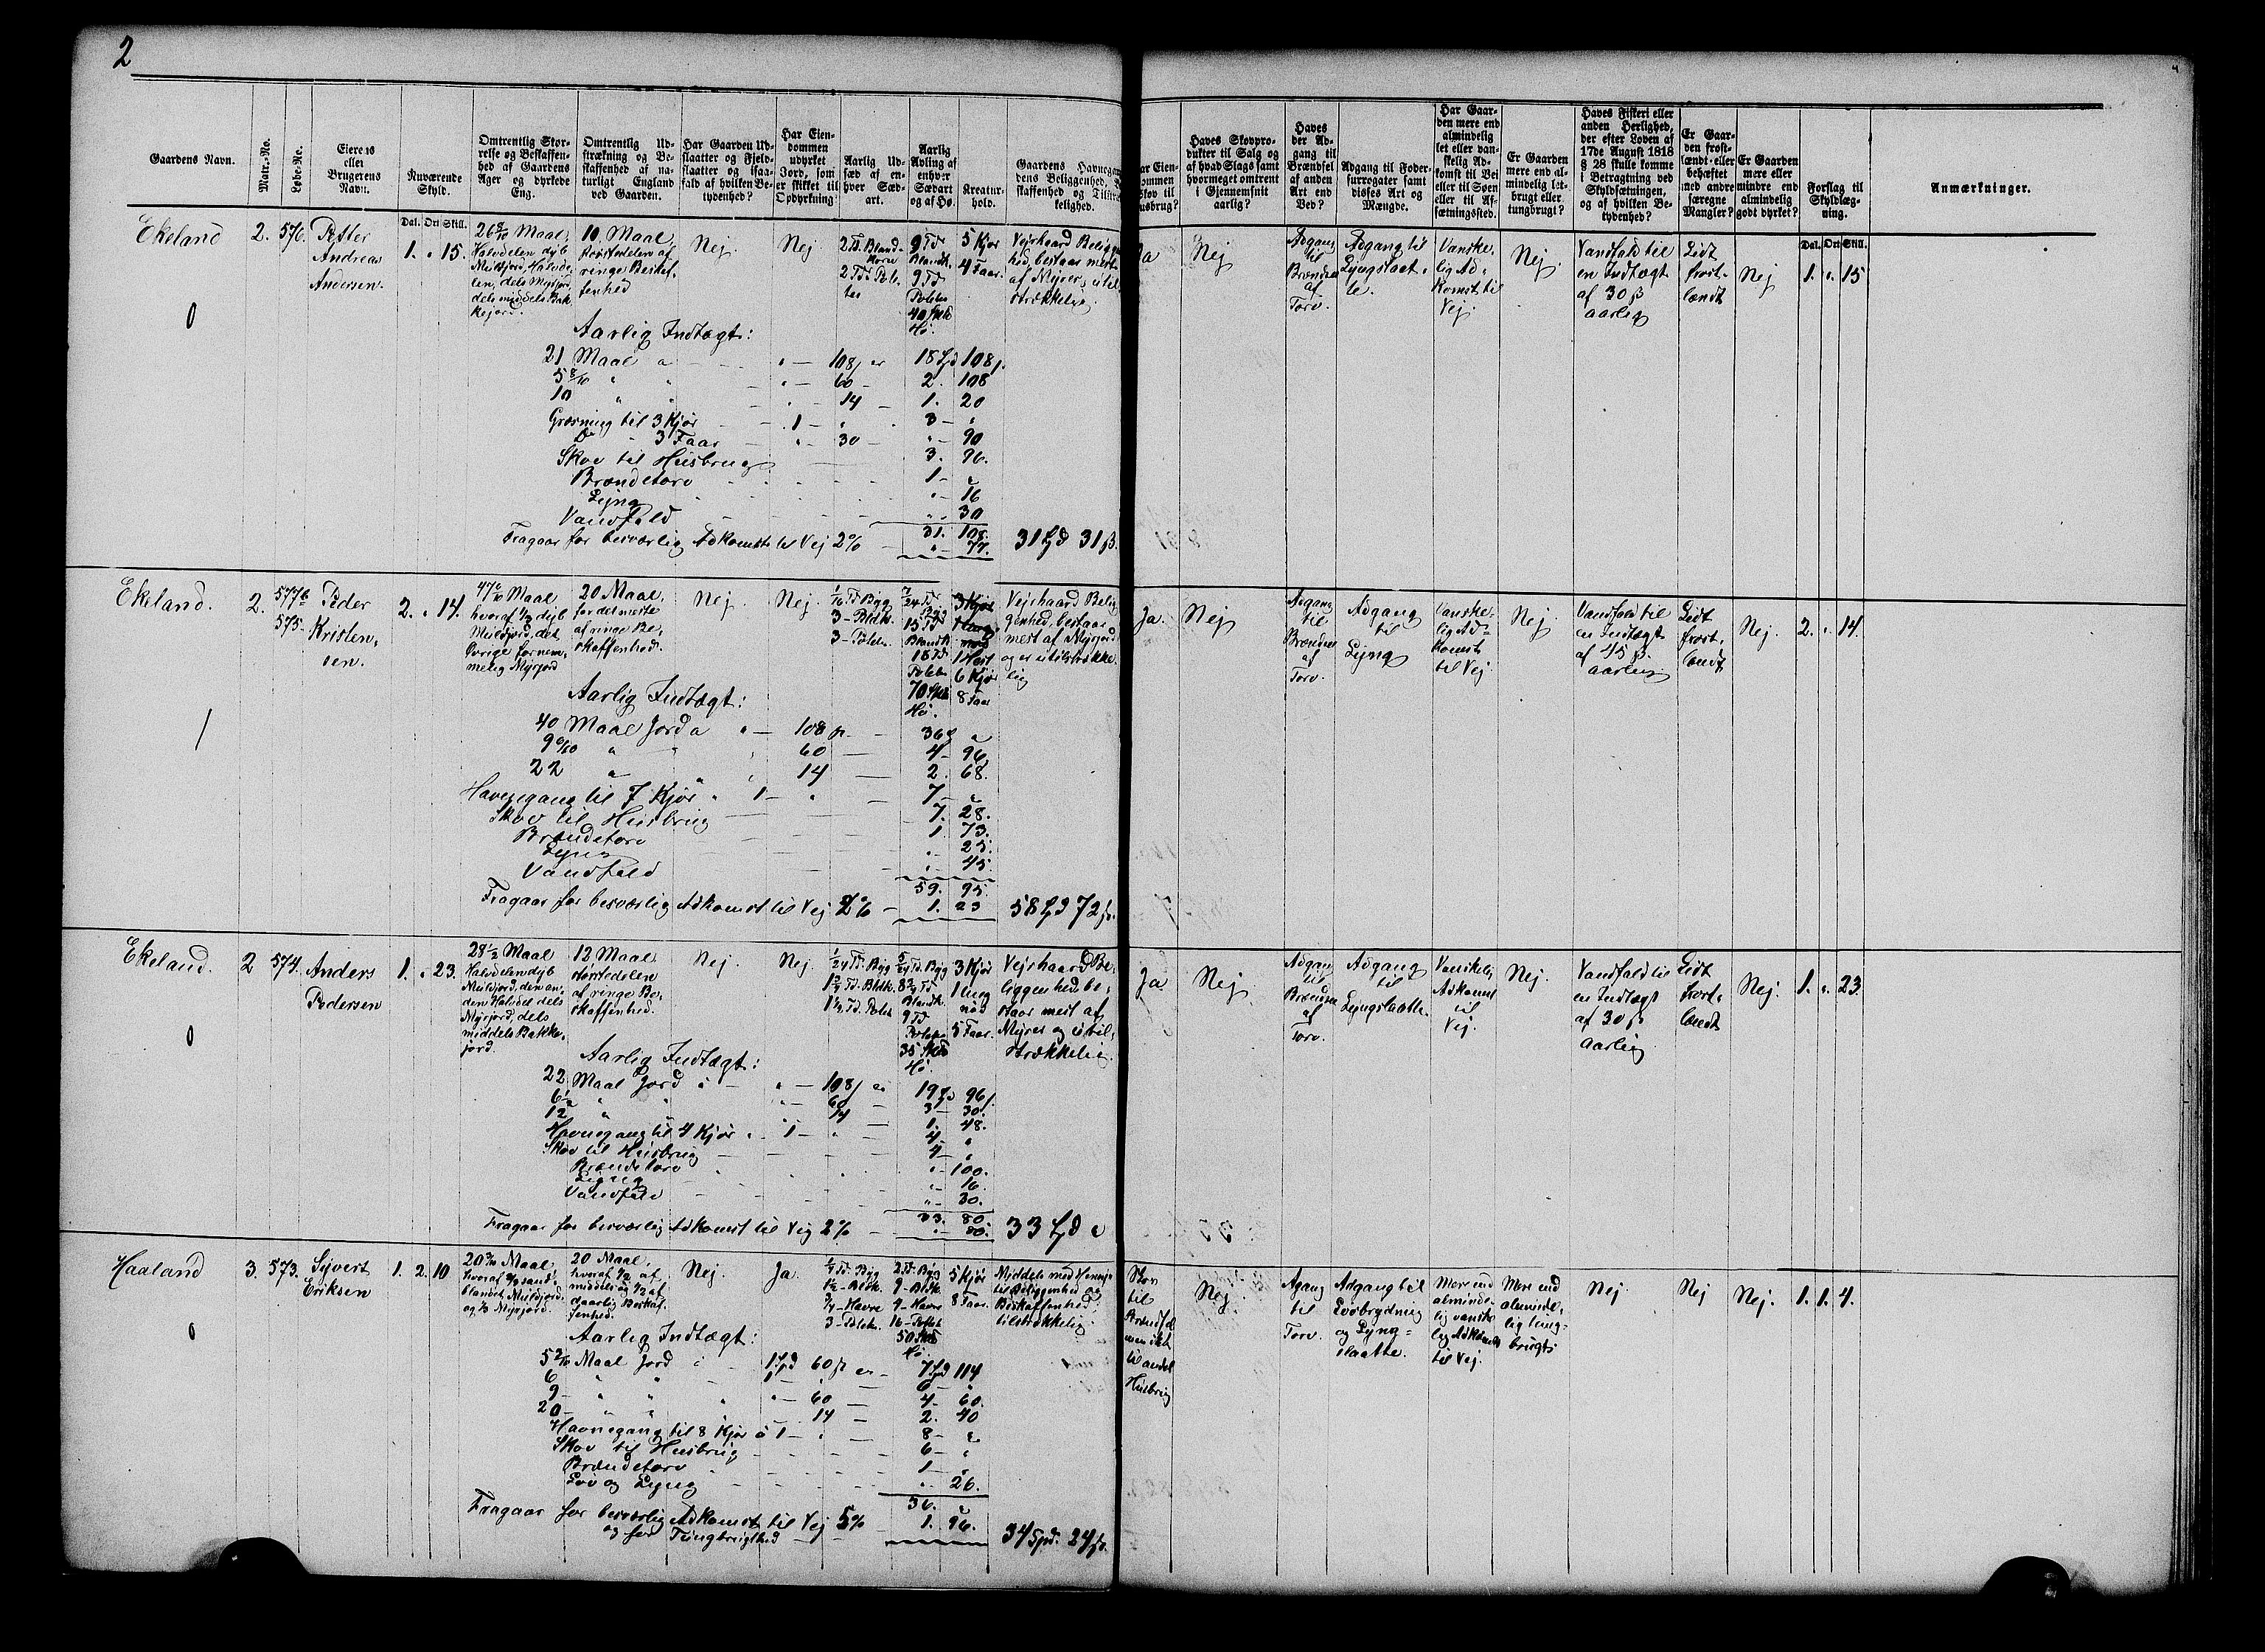 2
Gaardens Navn.
Matr.-No.
Løbe-No.
Eierens
eller
Brugerens
Navn.
Nuværende
Skyld.
Omtrentlig Stør-
relse og Beskaffen-
hed af Gaardens
Ager og dyrkede
Eng.
Omtrentlig Ud-
strækning og Be-
skaffenhed af na-
turligt England
ved Gaarden.
Har Gaarden Ud-
slaatter og Fjeld-
slaatter og isaa-
fald af hvilken Be-
tydenhed?
Har Eien-
dommen
udyrket
Jord, som
er skikket til
Opdyrkning
Aarlig Ud-
sæd af en-
hver Sæd-
art.
Aarlig
Avling af
enhver
Sædart
og af Hø.
Kreatur-
hold.
Gaardens Havnegang
dens Beliggenhed,
skaffenhed og Tilstræ
kelighed.
ar Eien-
ommen
Skov til
usbrug?
Haves Skovpro-
dukter til Salg og
af hvad Slags samt
hvormeget omtrent
i Gjennemsnit
aarlig?
Haves
der Ad-
gang til
Brændsel
af anden
Art end
Ved?
Adgang til Foder-
surrogater samt
disses Art og
Mængde.
Har Gaar-
den mere end
almindelig
let eller van-
skelig Ad-
komst til Vei
eller til Søen
eller til Af-
sætningssted.
Er Gaarden
mere end al-
mindelig let-
brugt eller
tungbrugt?
Haves Fiskeri eller
anden Herlighed,
der efter Loven af
17de August 1818
§ 28 skulle komme
i Betragtning ved
Skyldsætningen,
og af hvilken Be-
tydenhed?
Er Gaar-
den frost-
lændt eller
behæftet
med andre
særegne
Mangler?
Er Gaarden
mere eller
mindre end
almindelig
godt dyrket?
Forslag til
Skyldlæg-
ning.
Anmærkninger.
Dal. Ort Skill.
Dal. Ort Skill.
Ekeland 2. 576.
Petter
Andreas
Andersen.
1. " 15.
26 8/10 Maal,
Halvdelen dyb
Muldjord, Halvde-
len, dels Myrjord,
dels middels Bak-
kejord.
10 Maal,
størstedelen af
ringe Beskaf-
fenhed
Nej
Nej
2 Td. Bland-
korn
2 Td. Pote-
tes
9 Td
Blandk.
9 Td
Poteter
40 Skd
Hø.
5 Kjør
4 Faar.
Vejrhaard Beligge
hed, bestaar mest
af Myrer, util-
strækkelig.
Ja
Nej
Adgang
til
Brændsel
af
Torv.
Adgang til
Lyngslaat-
te.
Vanske-
lig Ad-
komst til
Vej.
Nej.
Vandfald til
en Indtægt
af 30 ß
aarlig
Lidt
frost-
lændt
Nej
1. " 15
0
Aarlig Indtægt:
21 Maal a " — 108 ß er 18 Spd 108 ß.
5 8/10 " " — 60 — 2. 108
10 " " 14 — 1. 20
Græsning til 3 Kjør 1 — " 3 — "
Do " 3 Faar " 30 — " — 90
Skov til Husbrug 3. 96.
Brændetorv 1 — "
Lyng " — 16
Vandfald " 30
31. 108.
Fragaar for besværlig Adkomst til Vej 2% " — 77. 31 Spd 31 ß.
Ekeland. 2. 577b
575.
Peder
Kristen-
sen.
2. " 14.
47 6/10 Maal
hvoraf 1/2 dyb
Muldjord, det
Øvrige fornem-
melig Myrjord
20 Maal,
for det meste
af ringe Be-
skaffenhed.
Nej.
Nej.
1/16 Td Byg
3 - Bldk.
3 - Poteter.
7/24 Td
Byg
15 Td
Blandk.
18 Td
Poteter
70 Skd
Hø.
1 Hest
6 Kjør
8 Faar
Vejrhaard Belig
genhed, bestaar
mest af Myrjord
og er utilstrække-
lig
Ja.
Nej
Adgang
til
Brændsel
af
Torv.
Adgang
til
Lyng
Vanske-
lig Ad-
komst
til Vej
Nej.
Vandfald til
en Indtægt
af 45 ß.
aarlig
Lidt
frost-
lændt
Nej.
2. " 14.
1
Aarlig Indtægt:
40 Maal Jord a " — 108 ß. — 36 — "
9 6/10 " " 60 — 4 — 96
22 " " 14 — 2. 68.
Havnegang til 7 Kjør " 1 — " — 7 — "
Skov til Husbrug 7. 28.
Brændetorv 1. 73.
Lyng " 25.
Vandfald " 45.
59. 95.
Fragaar for besværlig Adkomst til Vej 2% — 1. 23 58 Spd 72 ß.
Ekeland. 2 574.
Anders
Pedersen
1. " 23.
28 1/2 Maal
Halvdelen dyb
Muldjord, den an-
den Halvdel dels
Myrjord, dels
middels Bakke-
jord.
12 Maal
størstedelen
af ringe Be-
skaffenhed.
Nej.
Nej.
1/24 Td. Byg
1 3/4 Td. Bldk.
1 1/2 Td. Potet.
5/24 Td. Byg
8 3/4 Td
Blandk.
9 Td
Poteter
35 Skd
Hø.
3 Kjør
1 Ung
nød
5 Faar.
Vejrhaard Be-
liggenhed be-
staar mest af
Myrer og util-
strækkelig.
Ja
Nej
Adgang
til
Brændsel
af
Torv.
Adgang
til
Lyngslaatte.
Vanskelig
Adkomst
til
Vej.
Nej.
Vandfald til
en Indtægt
af 30 ß
aarlig
Lidt
frost-
lændt
Nej.
1. " 23.
0
Aarlig Indtægt:
22 Maal Jord a — " — 108 ß er 19 Spd 96 ß.
6 1/2 " " 60 — 3 — 30.
12 " " 14 1. 48.
Havnegang til 4 Kjør " 1 — " — 4 — "
Skov til Husbrug 4 — "
Brændetorv " — 100.
Lyng " 16.
Vandfald " — 30.
33. 80.
Fragaar for besværlig Adkomst til Vej 2% — " — 80. 33 Spd "
Haaland 3. 573.
Syvert
Eriksen
1. 2. 10
20 2/10 Maal,
hvoraf 1/2 sand-
blandet Muldjord
og 1/2 Myrjord.
20 Maal,
hvoraf 1/2 af
middels og 1/2 af
daarlig Beskaf-
fenhed.
Nej.
Ja.
1/4 Td. Byg
1 1/2 - Bldk.
3/4 - Havre
3 - Potet.
2 Td. Byg
9 - Bldk.
4 - Havre
16 - Potet
50 Skd
Hø.
5 Kjør
8 Faar.
Middels med Hensyn
til Beliggenhed og
Beskaffenhed,
tilstrækkelig.
Skov
til
Brændsel
men ikke
til andet
Husbrug
Nej
Agang
til
Torv.
Adgang til
Løvbrydning
og Lyng-
slaatte.
Mere end
alminde-
lig vanske
lig Adkomst
til Vej.
Mere end
alminde-
lig tung-
brugt.
Nej.
Nej
Nej.
1. 1. 4.
0
Aarlig Indtægt:
5 2/10 Maal Jord a 1 Spd 60 ß er — 7 Spd 114
6 " " 1 — " 6 — "
9 — " " " — 60 — 4 — 60.
20 — " " " — 14 — 2. 40
Havnegang til 8 Kjør a 1 — " — 8 — "
Skov til Husbrug 6 — "
Brændetorv 1 — "
Løv og Lyng " 26.
36. "
Fragaar for besværlig Adkomst til Vej 5% 1. 96.
og for Tungbrugthed — 34 Spd. 24 ß.